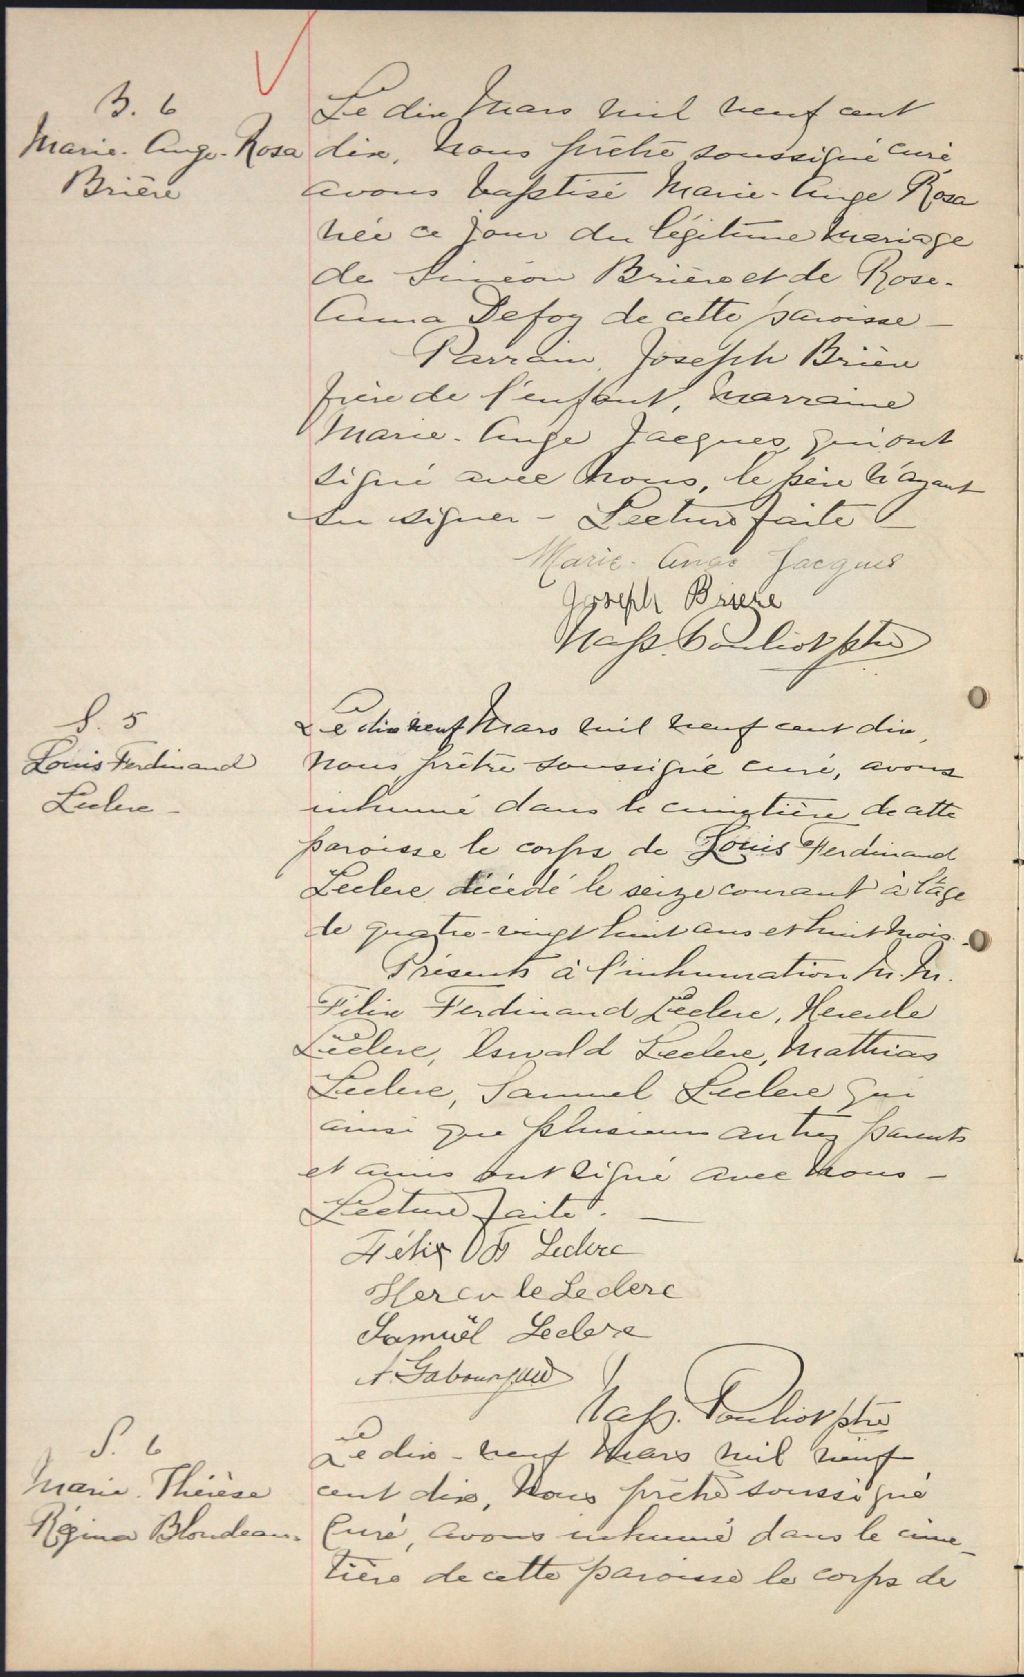 B. 6
Marie-Ange-Rosa
Brière
Le dix Mars mil neuf cent
dix, Nous prêtre soussigné curé
avons baptisé Marie-Ange Rosa
née ce jour du légitime mariage
de Siméon Brière et de Rose-
Anna Defoy de cette paroisse –
Parrain, Joseph Brière
frère de l'enfant, marraine
Marie-Ange Jacques, qui ont
signé avec nous, le père n'ayant
su signer – Lecture faite –
Marie-Ange Jacques
Joseph Briere
Nap. Pouliot ptre
S. 5
Louis Ferdinand
Leclerc –
Le dix neuf Mars mil neuf cent dix,
nous prêtre soussigné curé, avons
inhumé dans le cimetière de cette
paroisse le corps de Louis Ferdinand
Leclerc décédé le seize courant à l'âge
de quatre-vingt huit ans et huit mois.
Présents à l'inhumation M.M.
Félix Ferdinand Leclerc, Hercule
Leclerc, Oswald Leclerc, Mathias
Leclerc, Samuel Leclerc qui
ainsi que plusieurs autres parents
et amis ont signé avec nous –
Lecture faite. –
Félix F Leclerc
Hercule Leclerc
Samuël Leclerc
A. Gaboury
Nap. Pouliot ptre
S. 6
Marie Thérèse
Régina Blondeau.
Le dix-neuf Mars mil neuf
cent dix, Nous prêtre soussigné
Curé, avons inhumé dans le cime-
tière de cette paroisse le corps de